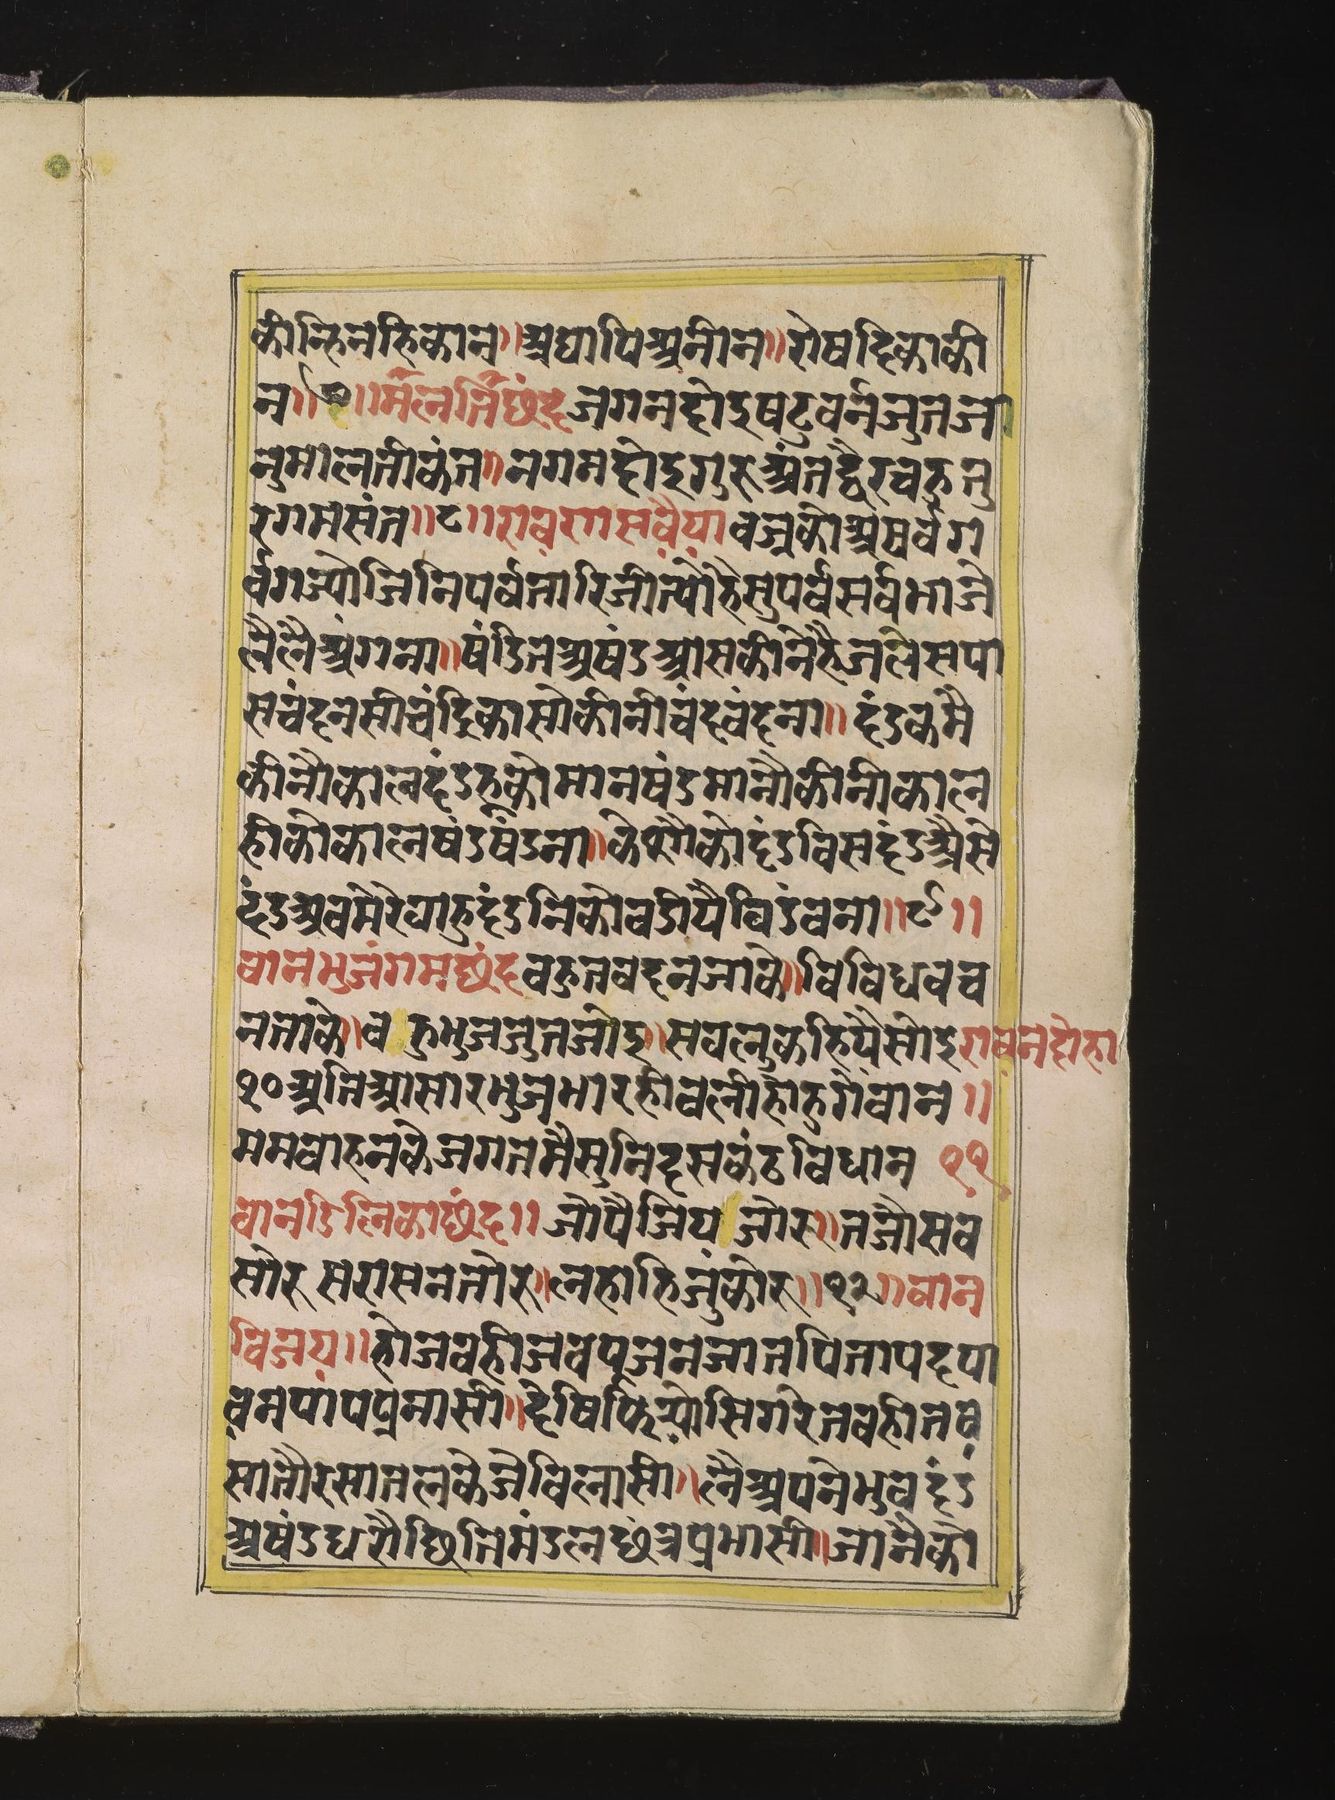 कीन्हिनहिकान॥अद्यापिअनीन॥रोषदिकाकी
न॥७॥मलतिछंद जगनहोइषटुवर्नजुतजा
नुमालतीकंत॥नगमहोइगुरुअंतद्वैरचहुतु
रगमसंत॥८॥रावरणसवैया वज्रकोअषर्वग
र्वगज्योजिनिपर्वतारिजीत्यौहैसुपर्वसर्वभाजे
लैलैअंगना॥षंडितअषंडआसकीनेहैजलेसपा
सचंदनसीचंद्रिकासोकीनीचंदवंदना॥दंडकमै
कीनौकालदंडहुकोमानषंडमानौकीनीकाल
हीकीकालषंडषंडना॥केशौकोदंडविसदंडअैसे
षंडअवमेरेयाहुदंडनिकीवडीयैविडंवना॥९॥
वानभुजंगमछंद वहुतवदनजाके॥विविधवच
नताके॥वहुभुजजुतजोइ॥सवलुकहियैसोइ रावनदोहा
१०अतिआसारभुजभारहीवलीहोहुगेवान॥
ममवाहनकेजगतमैसुनिदसकंठविधान ११
वानडिलिकाछंद॥ जोपैजिय जोरु॥तजौसव
सोरु सरासनतोरु॥लहाहिजुंकोरु॥१२॥वान
विजय॥हौजवहीजवपूजनजातपितापदपा
वनपापप्रनासी॥देषिफिर्योसिगरेतवहीतव
सातौरसातलकेजेविलासी॥लैअपनेभुवदंड
अषंडधरौछितिमंडलछत्रप्रभासी॥जानैको